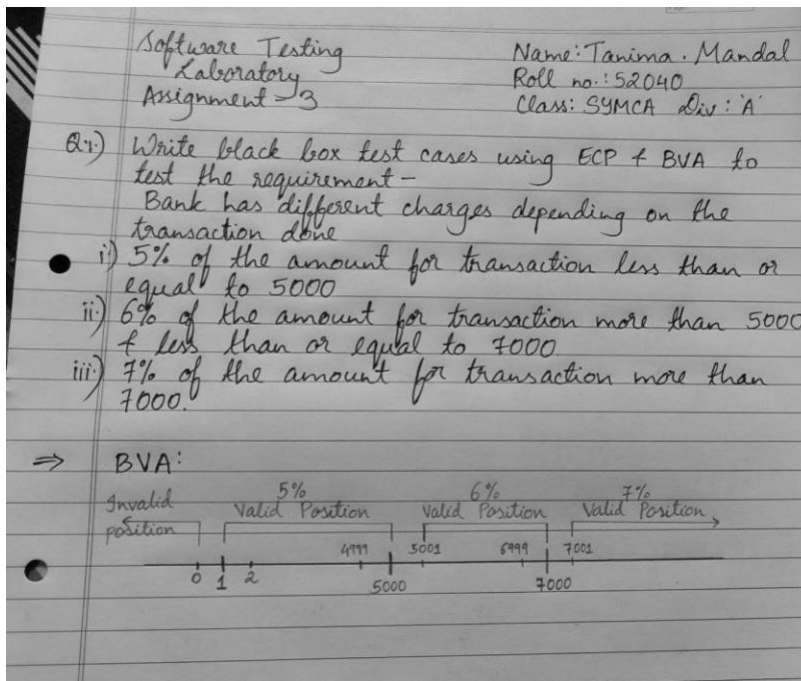 Software Testing
Laboratory
Assignment - 3
Name: Tanima. Mandal
Roll no.: 52040
Class: SYMCA Div: 'A'
Q.1.) Write black box test cases using ECP & BVA to
test the requirement -
Bank has different charges depending on the
transaction done
i) 5% of the amount for transaction less than or
equal to 5000
ii.) 6% of the amount for transaction more than 5000
& less than or equal to 7000
iii.) 7% of the amount for transaction more than
7000.
⇒ BVA:
5% 6% 7%
Invalid Valid Position Valid Position Valid Position
position
4999 5001 6999 7001
0 1 2 5000 7000